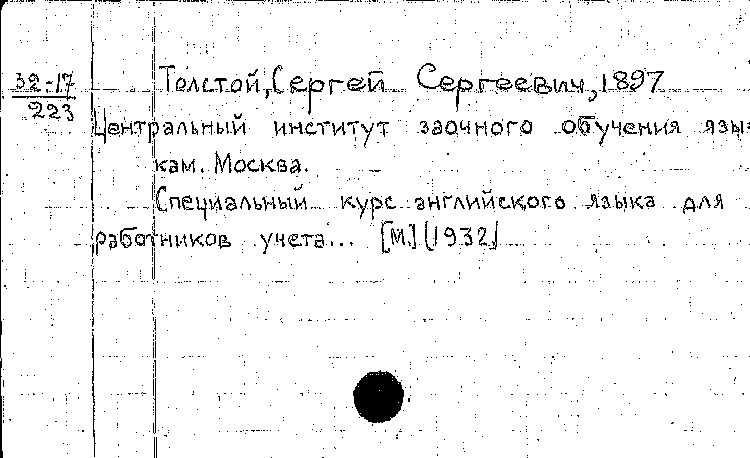 32-17
223
Толстой, Сергей Сергеевич, 1897
Центральный институт заочного обучения язы
кам. Москва.
Специальный курс английского языка для
работников учета... [М.] [1932]